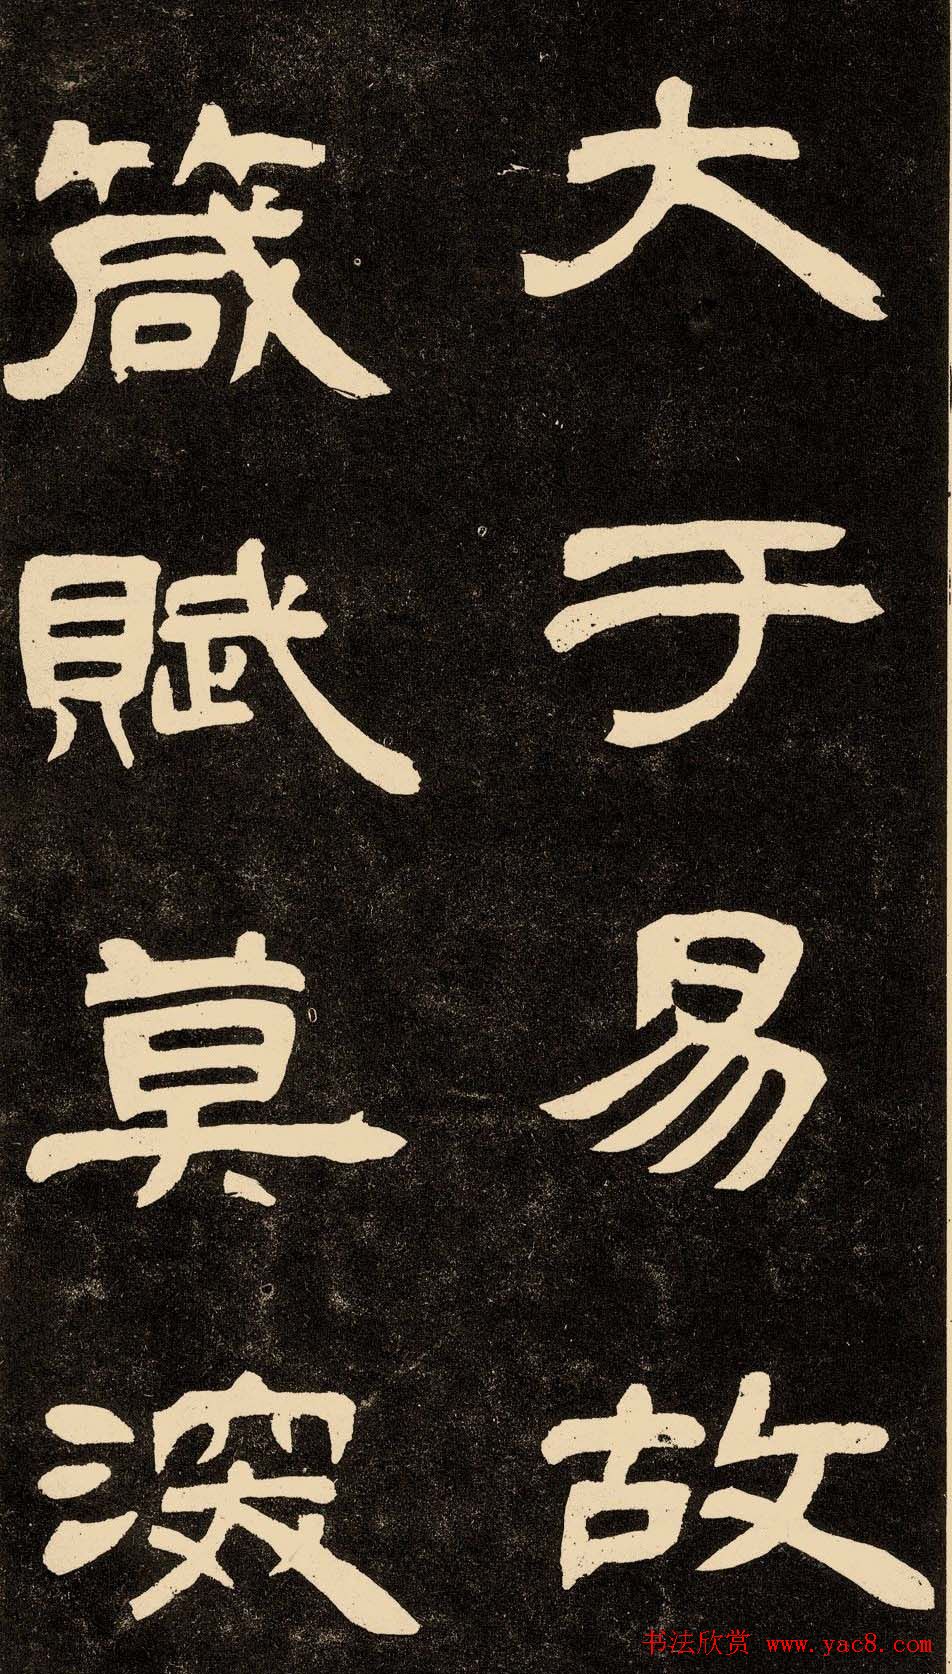 大于易故
箴賦莫深
书法欣赏 www.yac8.com